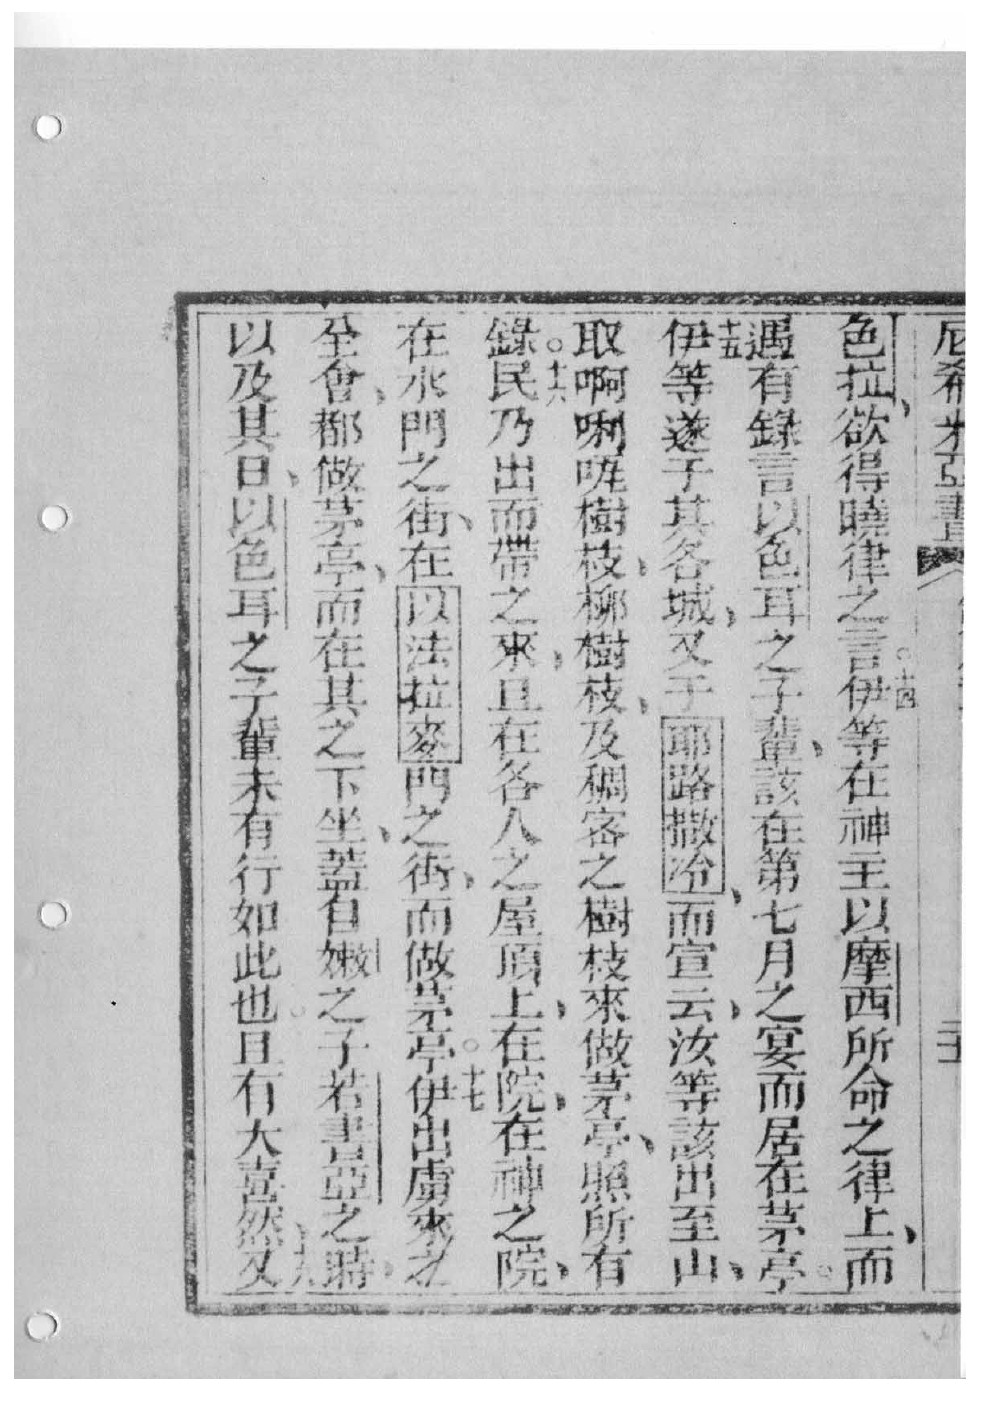 尼希米亞書
色拉、欲得曉律之言。十四伊等在神主以摩西所命之律上、而
遇有錄言以色耳之子輩、該在第七月之宴而居在茅亭。
十五伊等遂于其各城、又于耶路撒冷、而宣云、汝等該出至山、
取啊唎𠵽樹枝、柳樹枝、及稠密之樹枝來做茅亭、照所有
錄。十六民乃出而帶之來、且在各人之屋頂上、在院、在神之院、
在水門之街、在以法拉麥門之街、而做茅亭。十七伊出虜來之
全會、都做茅亭、而在其之下坐、蓋自嫩之子若書亞之時、
以及其日、以色耳之子輩未有行如此也。且有大喜然。十八又